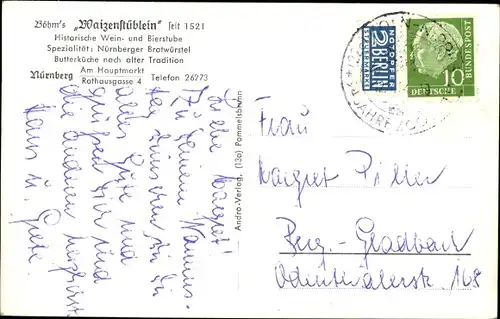 Böhm's „Waizenstüblein" seit 1521
Historische Wein- und Bierstube
Spezialität: Nürnberger Bratwürstel
Butterküche nach alter Tradition
Am Hauptmarkt
Nürnberg Rathausgasse 4 Telefon 26273
Liebe Margret!
Zu Deinem Namens-
tag wünschen wir Dir
alles Gute und
grüßen Dich und
die anderen herzlichst
Hans u. Grete.
Andro-Verlag, (13a) Pommelsbrunn
NOTOPFER
2 BERLIN
STEUERMARKE
DEUTSCHE
BUNDESPOST
10
Frau
Margret Piller
Berg.-Gladbach
Odenthalerstr. 168